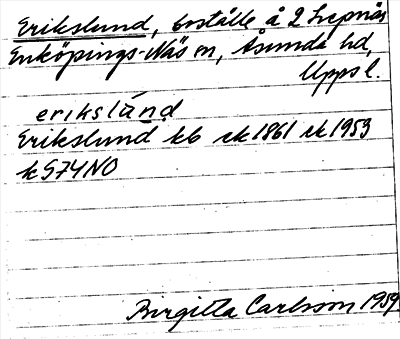 Erikslund, boställe å 2 Svepnäs
Enköpings-Näs sn, Åsunda hd,
Upps l.
erikslúnd
Erikslund kb ek 1861 rk 1953
k S74NO
Birgitta Carlsson 1959